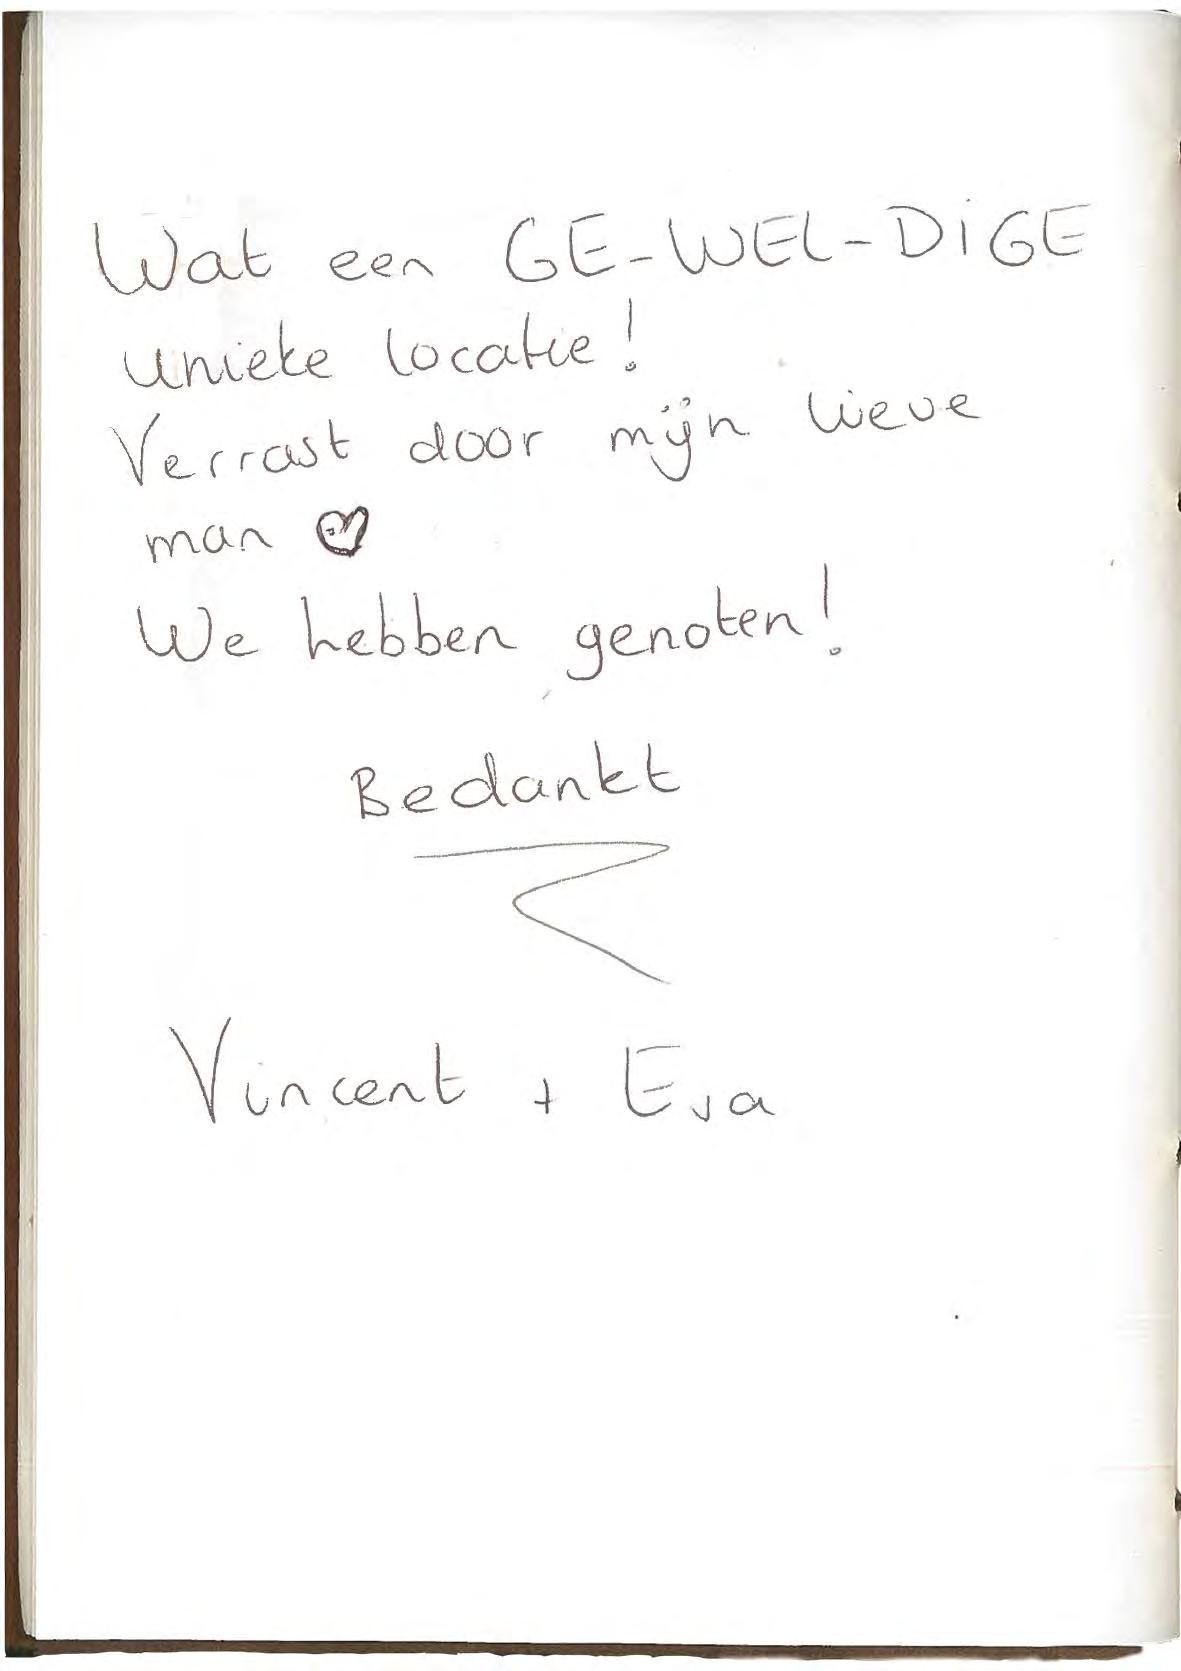 Wat een GE-WEL-DIGE
unieke locatie!
Verrast door mijn lieve
man ♡
We hebben genoten!
Bedankt
Vincent + Eva